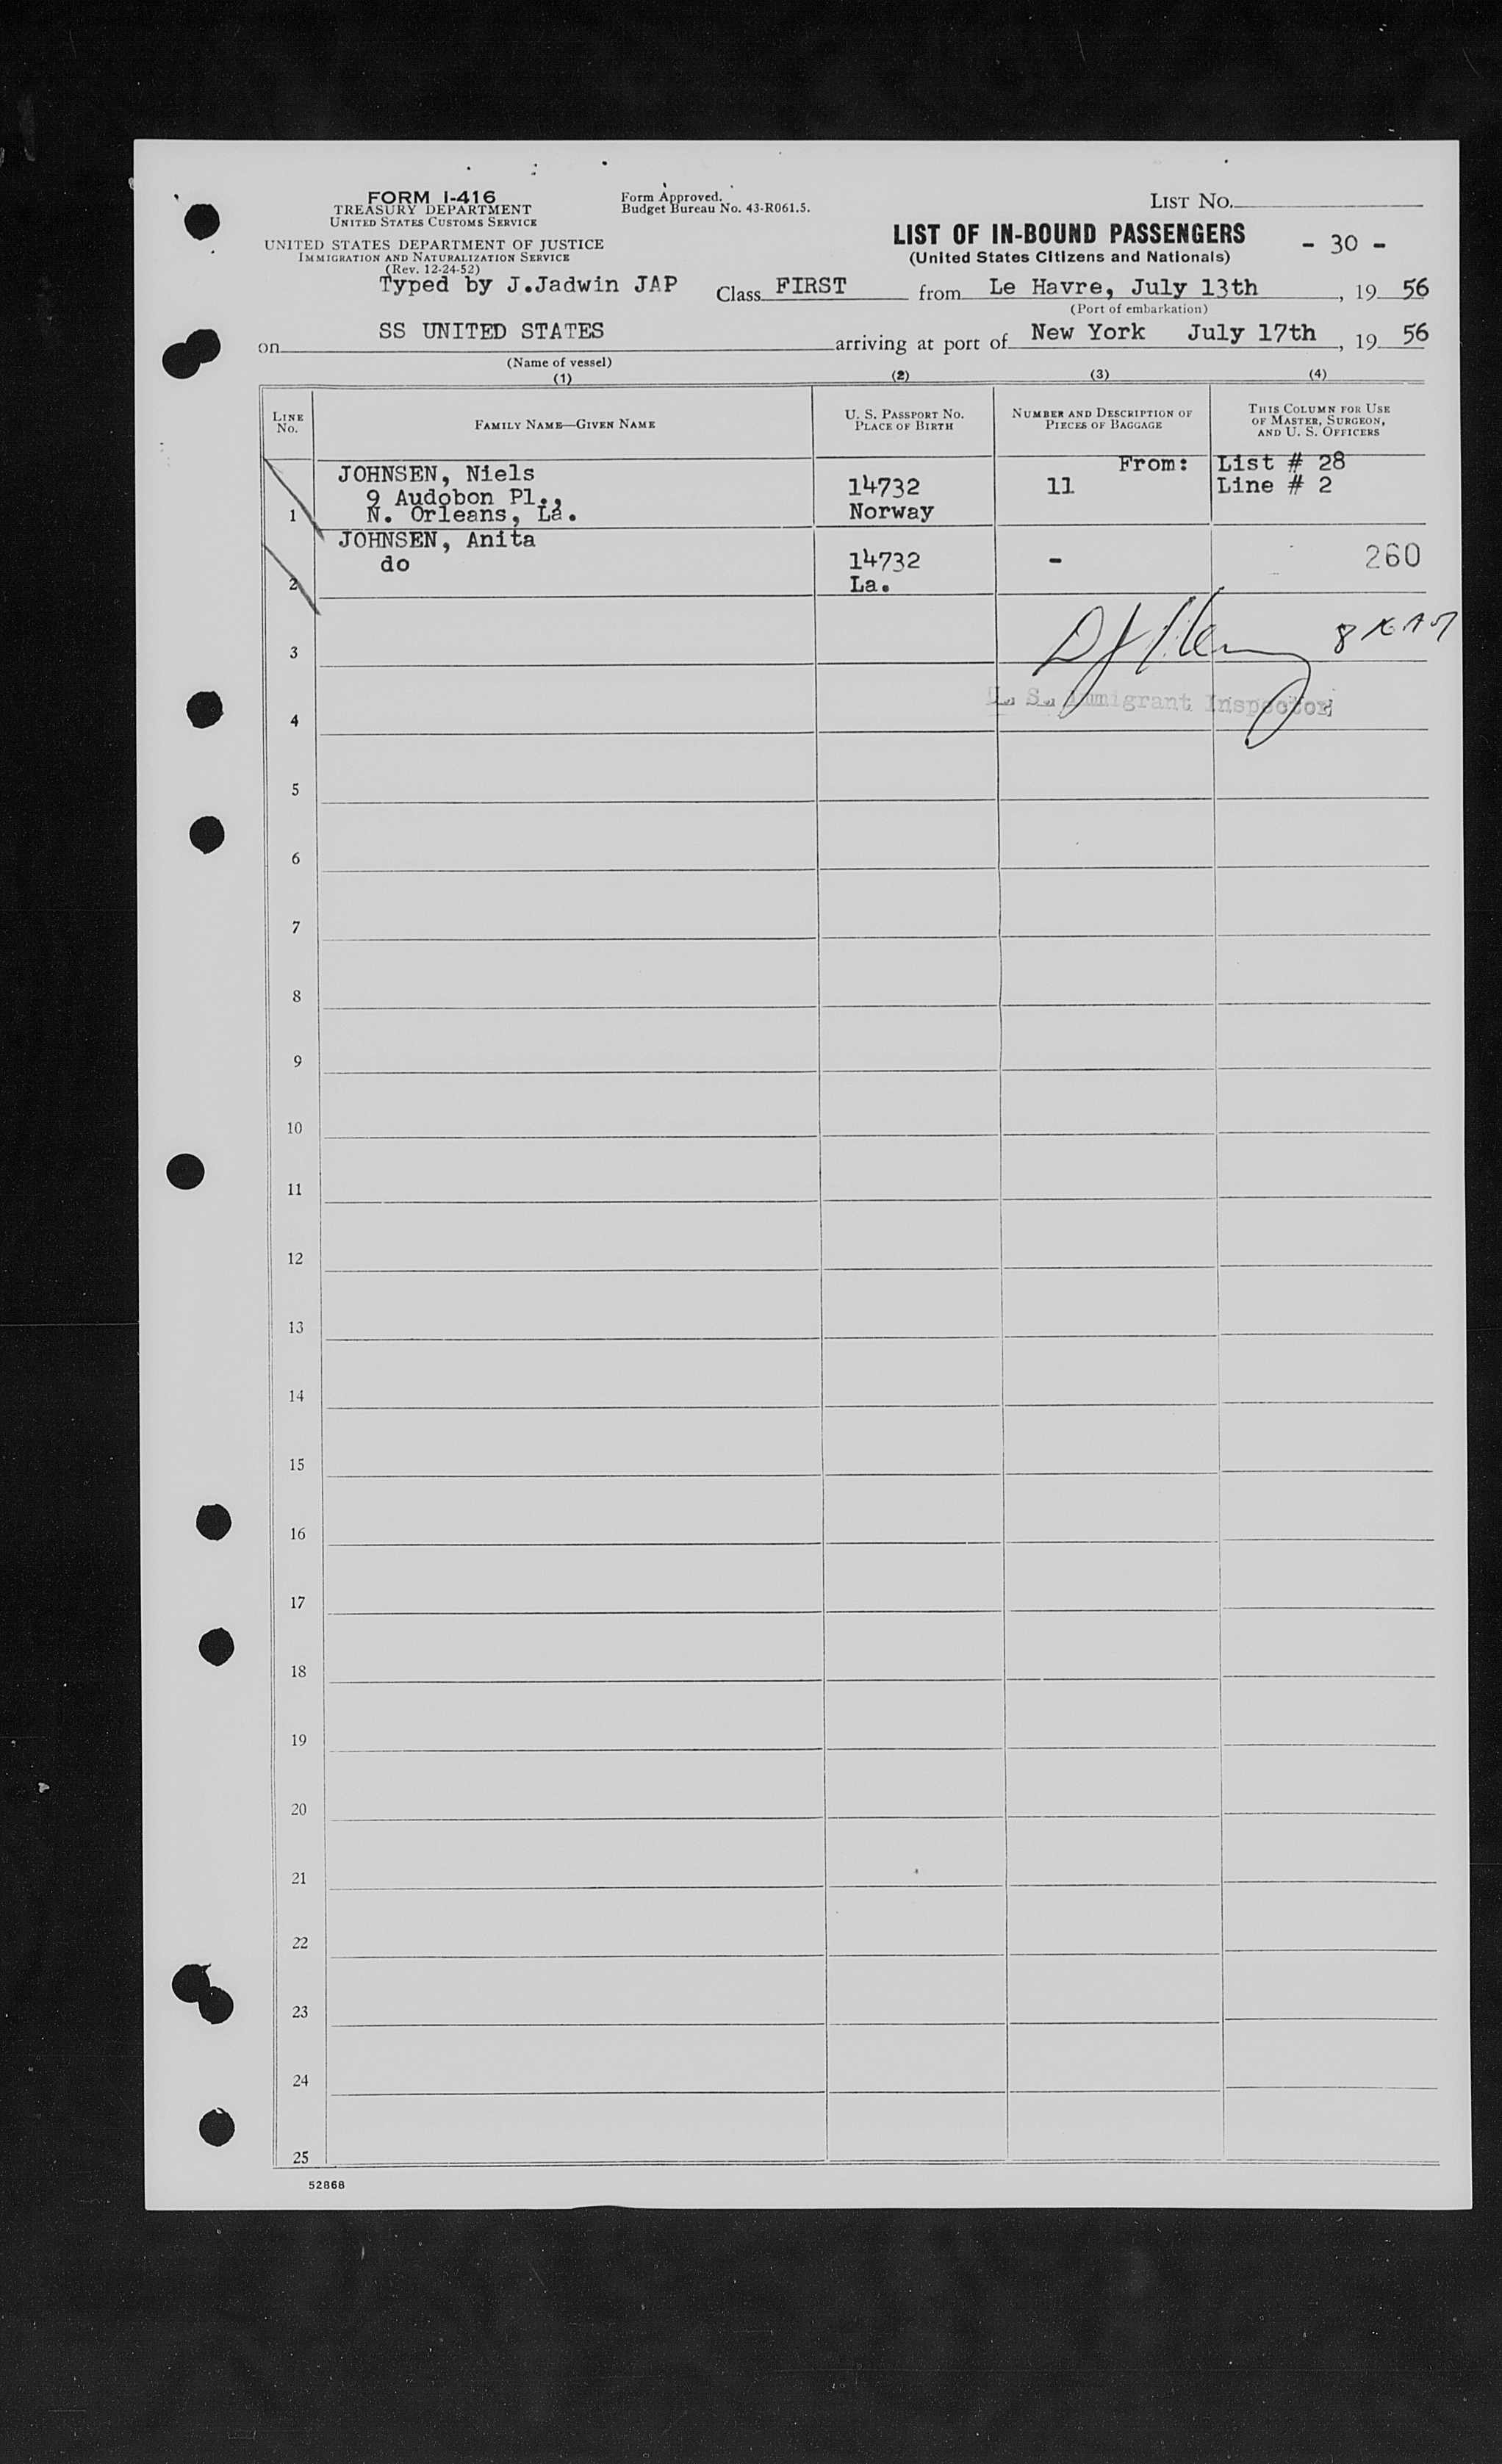 FORM I-416
TREASURY DEPARTMENT
UNITED STATES CUSTOMS SERVICE
UNITED STATES DEPARTMENT OF JUSTICE
IMMIGRATION AND NATURALIZATION SERVICE
(Rev. 12-24-52)
Form Approved.
Budget Bureau No. 43-R061.5.
LIST NO.
LIST OF IN-BOUND PASSENGERS
(United States Citizens and Nationals)
- 30 -
Typed by J.Jadwin JAP Class FIRST from Le Havre, July 13th, 19 56
(Port of embarkation)
on SS UNITED STATES arriving at port of New York July 17th, 19 56
(Name of vessel)
(1) (2) (3) (4)
LINE NO. FAMILY NAME—GIVEN NAME U. S. PASSPORT NO. PLACE OF BIRTH NUMBER AND DESCRIPTION OF PIECES OF BAGGAGE THIS COLUMN FOR USE OF MASTER, SURGEON, AND U. S. OFFICERS
JOHNSEN, Niels From: List # 28
9 Audobon Pl., 14732 11 Line # 2
1 N. Orleans, La. Norway
JOHNSEN, Anita
do 14732 - 260
2 La.
3
4 U. S. Immigrant Inspector
5
6
7
8
9
10
11
12
13
14
15
16
17
18
19
20
21
22
23
24
25
52868